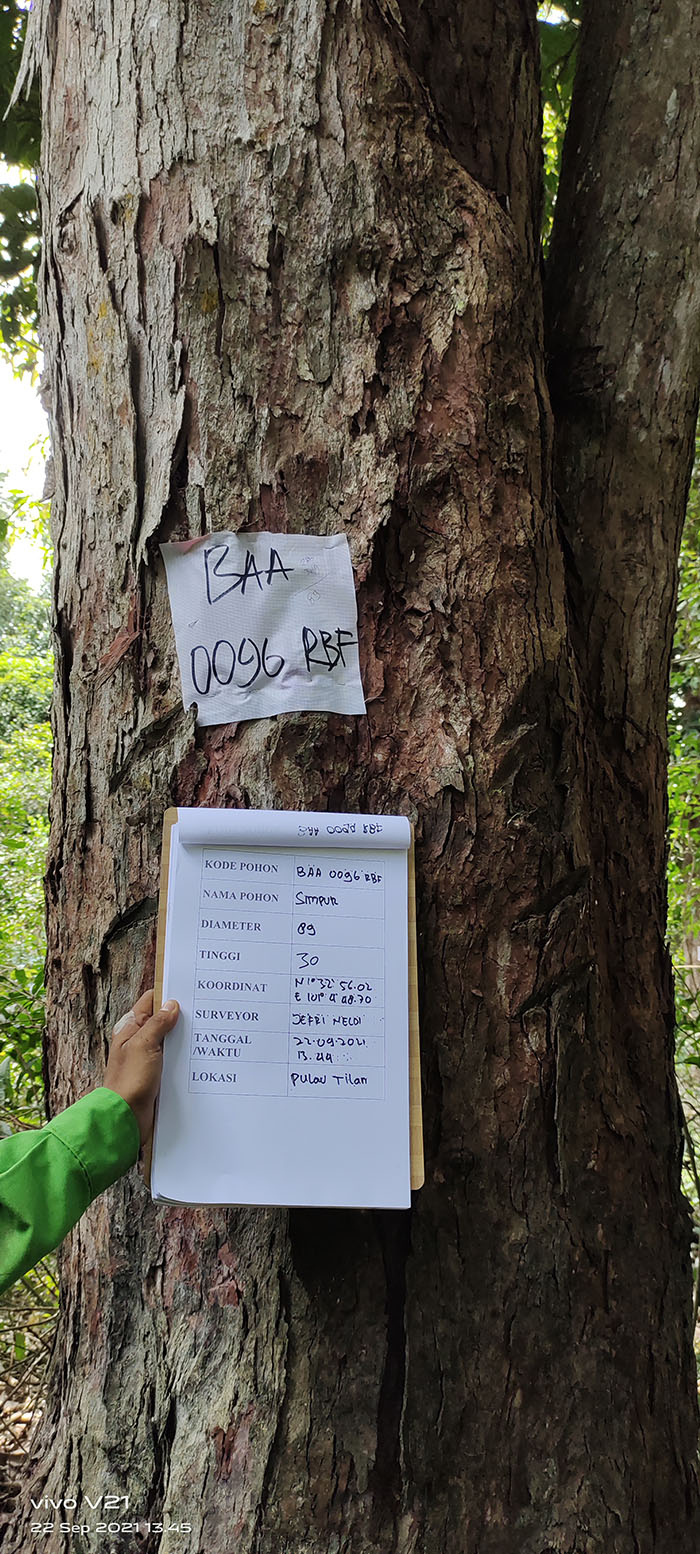 BAA
0096 RBF
KODE POHON BAA 0096 RBF
NAMA POHON Simpur
DIAMETER 89
TINGGI 30
KOORDINAT N 1° 32' 56.02
E 101° 4' 48.70
SURVEYOR JEFRI NELDI
TANGGAL 22-09-2021
/WAKTU 13.44
LOKASI Pulau Tilan
vivo V21
22 Sep 2021 13.45